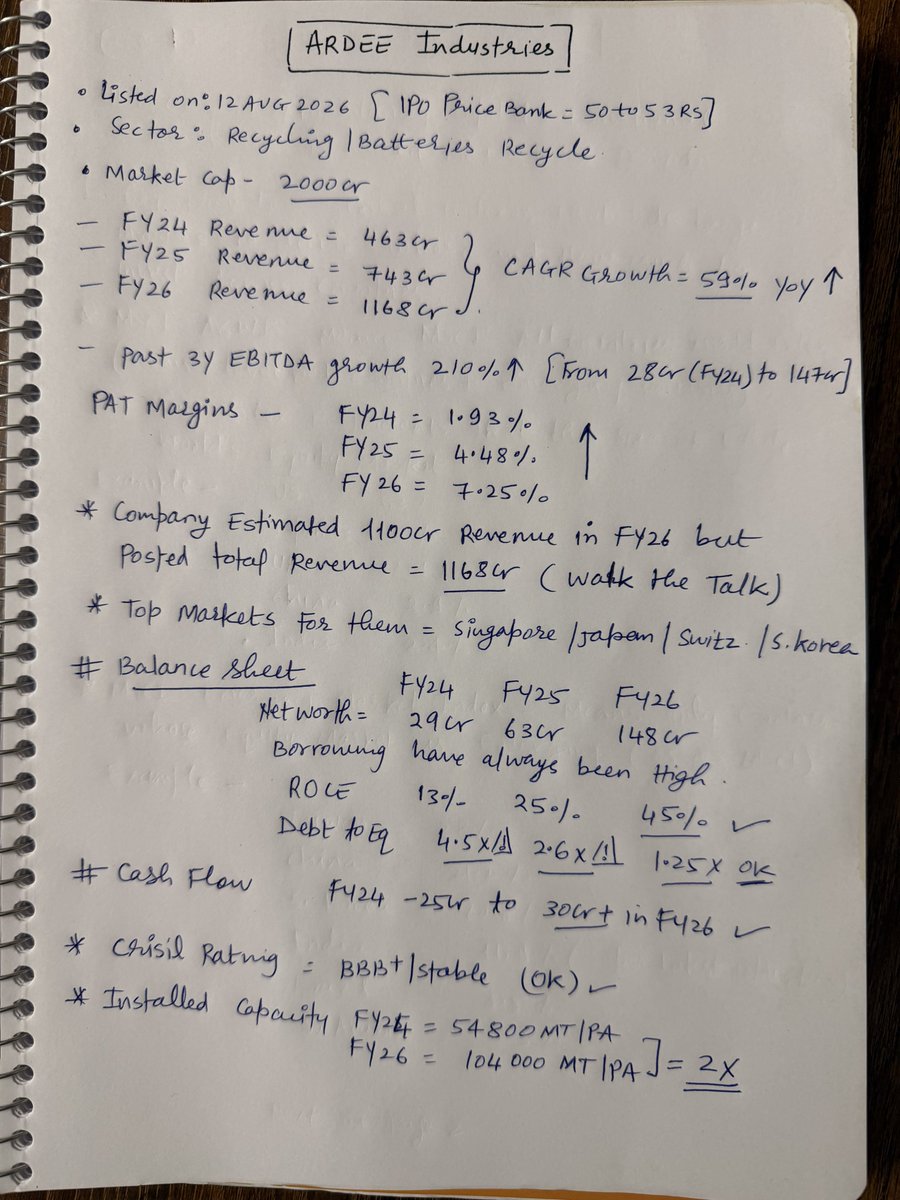 ARDEE Industries
• Listed on: 12 AUG 2026 [ IPO Price Bank = 50 to 53 RS]
• Sector: Recycling / Batteries Recycle.
• Market Cap - 2000cr
- FY24 Revenue = 463cr
- FY25 Revenue = 743cr
- FY26 Revenue = 1168cr
} CAGR Growth = 59% YoY ↑
- Past 3Y EBITDA growth 210% ↑ [From 28cr (FY24) to 147cr]
PAT Margins - FY24 = 1.93%
FY25 = 4.48%
FY26 = 7.25%
↑
* Company Estimated 1100cr Revenue in FY26 but
Posted total Revenue = 1168cr (Walk the Talk)
* Top Markets For them = Singapore / Japan / Switz. / S. Korea
# Balance Sheet
FY24 FY25 FY26
Networth = 29cr 63cr 148cr
Borrowing have always been High.
ROCE 13% 25% 45% ✓
Debt to Eq 4.5x/! 2.6x/! 1.25x OK
# Cash Flow FY24 -25cr to 30cr+ in FY26 ✓
* Crisil Ratnig = BBB+/stable (OK) ✓
* Installed Capacity FY24 = 54800 MT/PA
FY26 = 104000 MT/PA ] = 2X